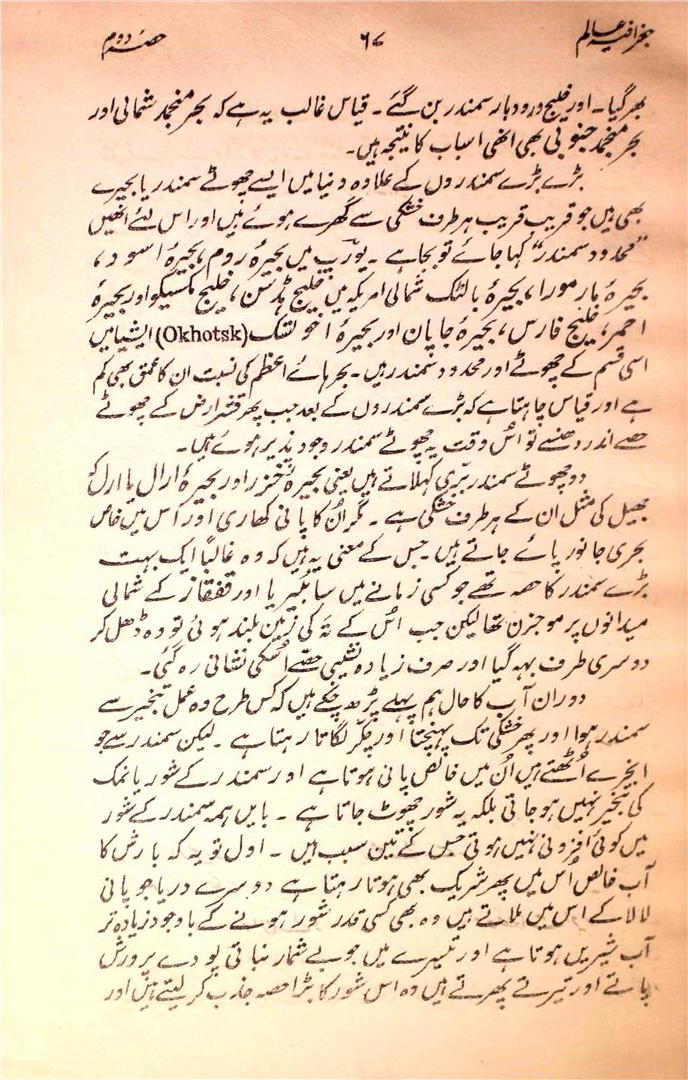 جغرافیہ عالم ۶۷ حصہ دوم
بھر گیا۔ اور خلیج و رودبار سمندر بن گئے۔ قیاس غالب یہ ہے کہ بحر منجمد شمالی اور
بحر منجمد جنوبی بھی انھی اسباب کا نتیجہ ہیں۔
بڑے بڑے سمندروں کے علاوہ دنیا میں ایسے چھوٹے سمندر یا بحیرے
بھی ہیں جو قریب قریب ہر طرف خشکی سے گھرے ہوئے ہیں اور اس لئے انھیں
”محدود سمندر“ کہا جائے تو بجا ہے۔ یورپ میں بحیرۂ روم، بحیرۂ اسود،
بحیرۂ مارمورا، بحیرۂ بالٹک شمالی امریکہ میں خلیج ہڈسن، خلیج مکسیکو اور بحیرۂ
احمر، خلیج فارس، بحیرۂ جاپان اور بحیرۂ اخولتسک (Okhotsk) ایشیا میں
اسی قسم کے چھوٹے اور محدود سمندر ہیں۔ بحر ہائے اعظم کی نسبت ان کا عمق بھی کم
ہے اور قیاس چاہتا ہے کہ بڑے سمندروں کے بعد جب پھر قشر ارض کے چھوٹے
حصے اندر دھنسے تو اُس وقت یہ چھوٹے سمندر وجود پذیر ہوئے ہیں۔
دو چھوٹے سمندر برّی کہلاتے ہیں یعنی بحیرۂ خزر اور بحیرۂ ارال یا ارل کہ
جھیل کی مثل ان کے ہر طرف خشکی ہے۔ مگر اُن کا پانی کھاری اور اس میں خاص
بحری جانور پائے جاتے ہیں۔ جس کے معنی یہ ہیں کہ وہ غالباً ایک بہت
بڑے سمندر کا حصہ تھے جو کسی زمانے میں سائبیریا اور قفقاز کے شمالی
میدانوں پر موجزن تھا لیکن جب اُس کے تہ کی زمین بلند ہوئی تو وہ ڈھل کر
دوسری طرف بہہ گیا اور صرف زیادہ نشیبی حصے اُسکی نشانی رہ گئی۔
دوران آب کا حال ہم پہلے پڑھ چکے ہیں کہ کس طرح وہ عمل تبخیر سے
سمندر ہوا اور پھر خشکی تک پہنچتا اور چکر لگاتا رہتا ہے۔ لیکن سمندر سے جو
ابخرے اُٹھتے ہیں اُن میں خالص پانی ہوتا ہے اور سمندر کے شور یا نمک
کی تبخیر نہیں ہو جاتی بلکہ یہ شور چھوٹ جاتا ہے۔ بایں ہمہ سمندر کے شور
میں کوئی افزونی نہیں ہوتی جس کے تین سبب ہیں۔ اول تو یہ کہ بارش کا
آب خالص اُس میں پھر شریک بھی ہوتا رہتا ہے دوسرے دریا جو پانی
لا لا کے اس میں ملاتے ہیں وہ بھی کسی قدر شور ہونے کے باوجود زیادہ تر
آب شیریں ہوتا ہے اور تیسرے میں جو بے شمار نباتی پودے پرورش
پاتے اور تیرتے پھرتے ہیں وہ اس شور کا بڑا حصہ جذب کر لیتے ہیں اور